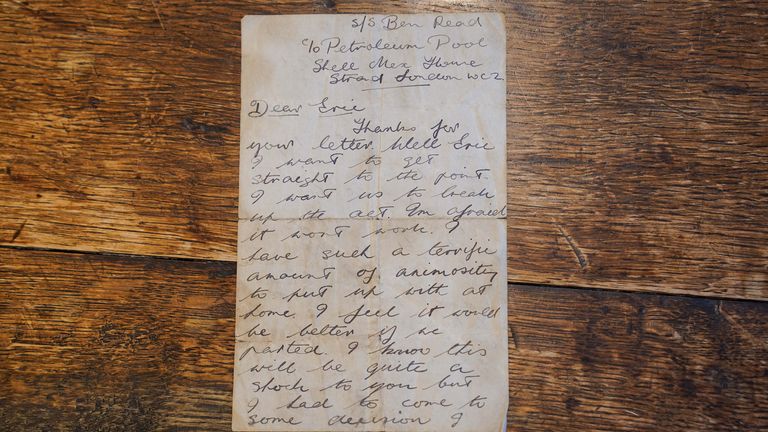 S/S Ben Read
c/o Petroleum Pool
Shell Mex House
Strad London WC2
Dear Eric
Thanks for
your letter. Well Eric
I want to get
straight to the point.
I want us to break
up the act. Im afraid
it wont work. I
have such a terrific
amount of animosity
to put up with at
home. I feel it would
be better if we
parted. I know this
will be quite a
shock to you but
I had to come to
some decision I